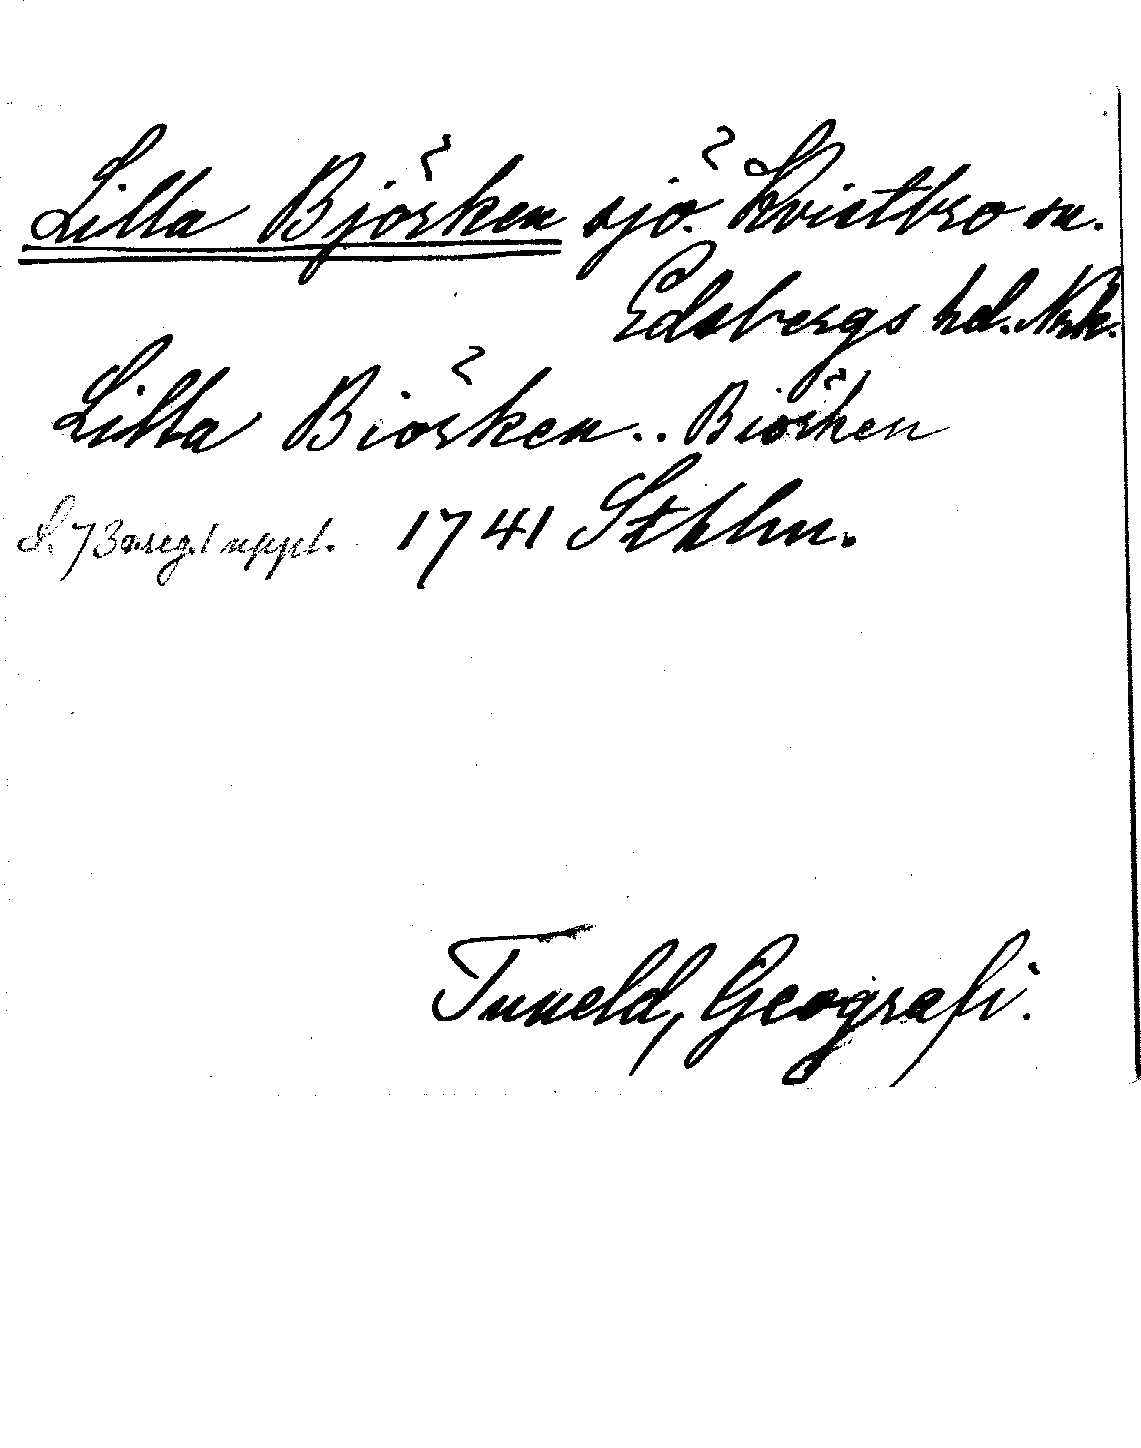 Lilla Björken sjö. Kvistbro sn.
Edsbergs hd. Nrk.
Lilla Biörken.. Biörken
S. 73 o. reg. 1 uppl. 1741 Sthlm.
Tuneld, Geografi.